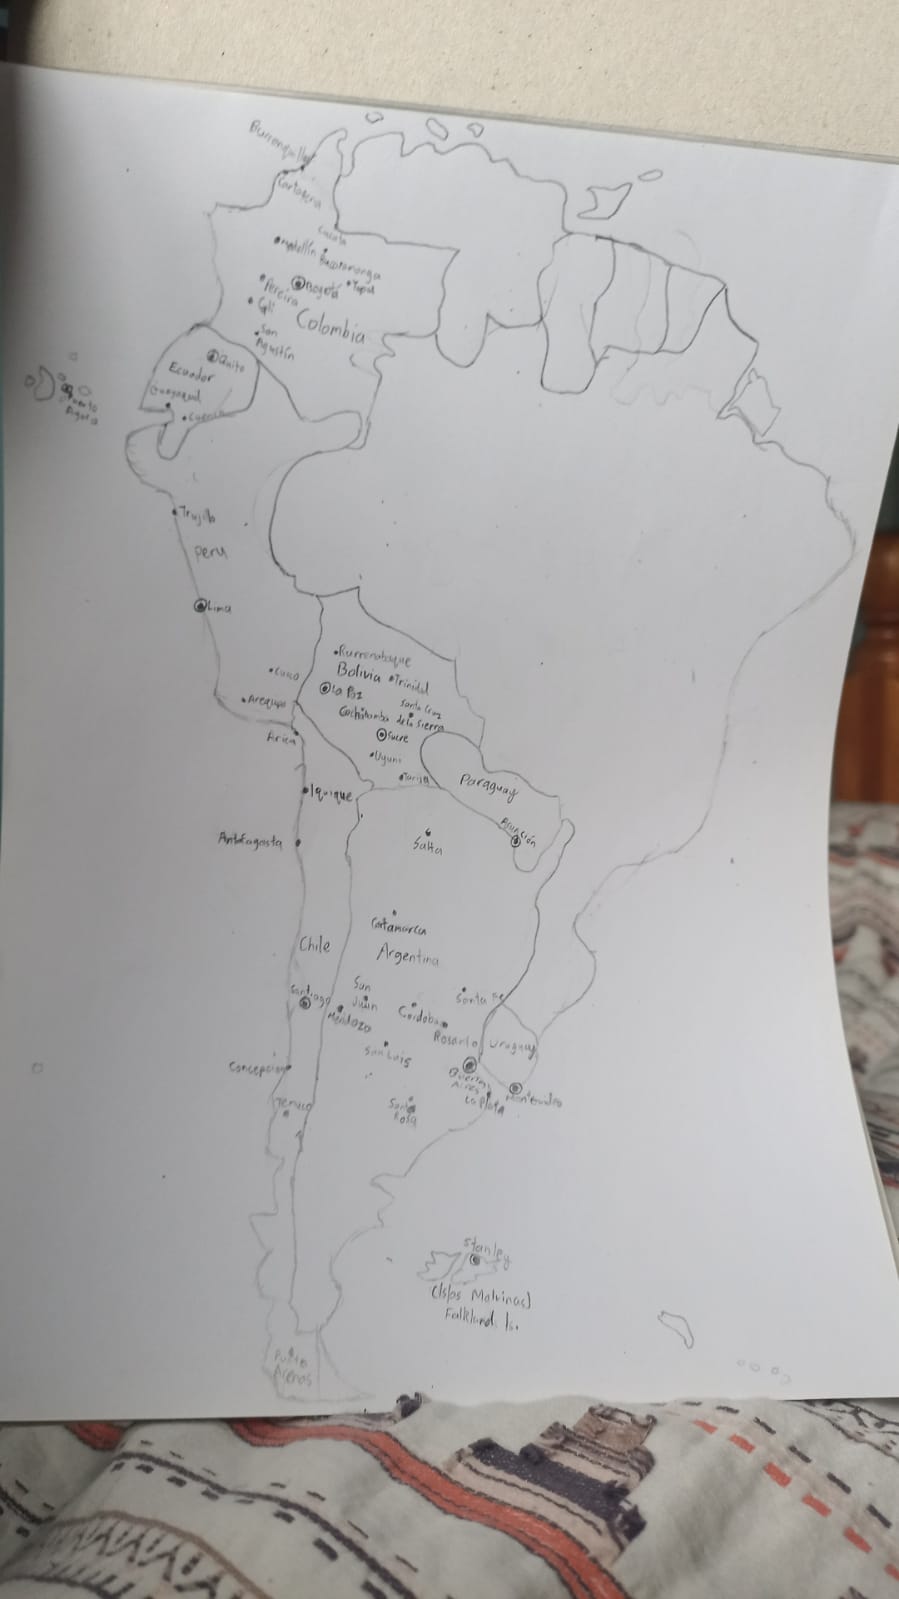 Barranquilla
Cartagena
Cúcuta
Medellín
Bucaramanga
Bogotá
Yopal
Pereira
Cali
Colombia
San
Agustín
Quito
Ecuador
Guayaquil
Cuenca
Puerto
Ayora
Trujillo
Peru
Lima
Cusco
Arequipa
Rurrenabaque
Bolivia
Trinidad
La Paz
Santa Cruz
de la Sierra
Cochabamba
Sucre
Uyuni
Tarija
Arica
Iquique
Paraguay
Asunción
Antofagasta
Salta
Catamarca
Argentina
Chile
Santiago
San
Juan
Mendoza
Córdoba
Santa Fe
Rosario
Uruguay
San Luis
Buenos
Aires
La Plata
Montevideo
Concepcion
Temuco
Santa
Rosa
Stanley
(Islas Malvinas)
Falkland Is.
Punto
Arenas